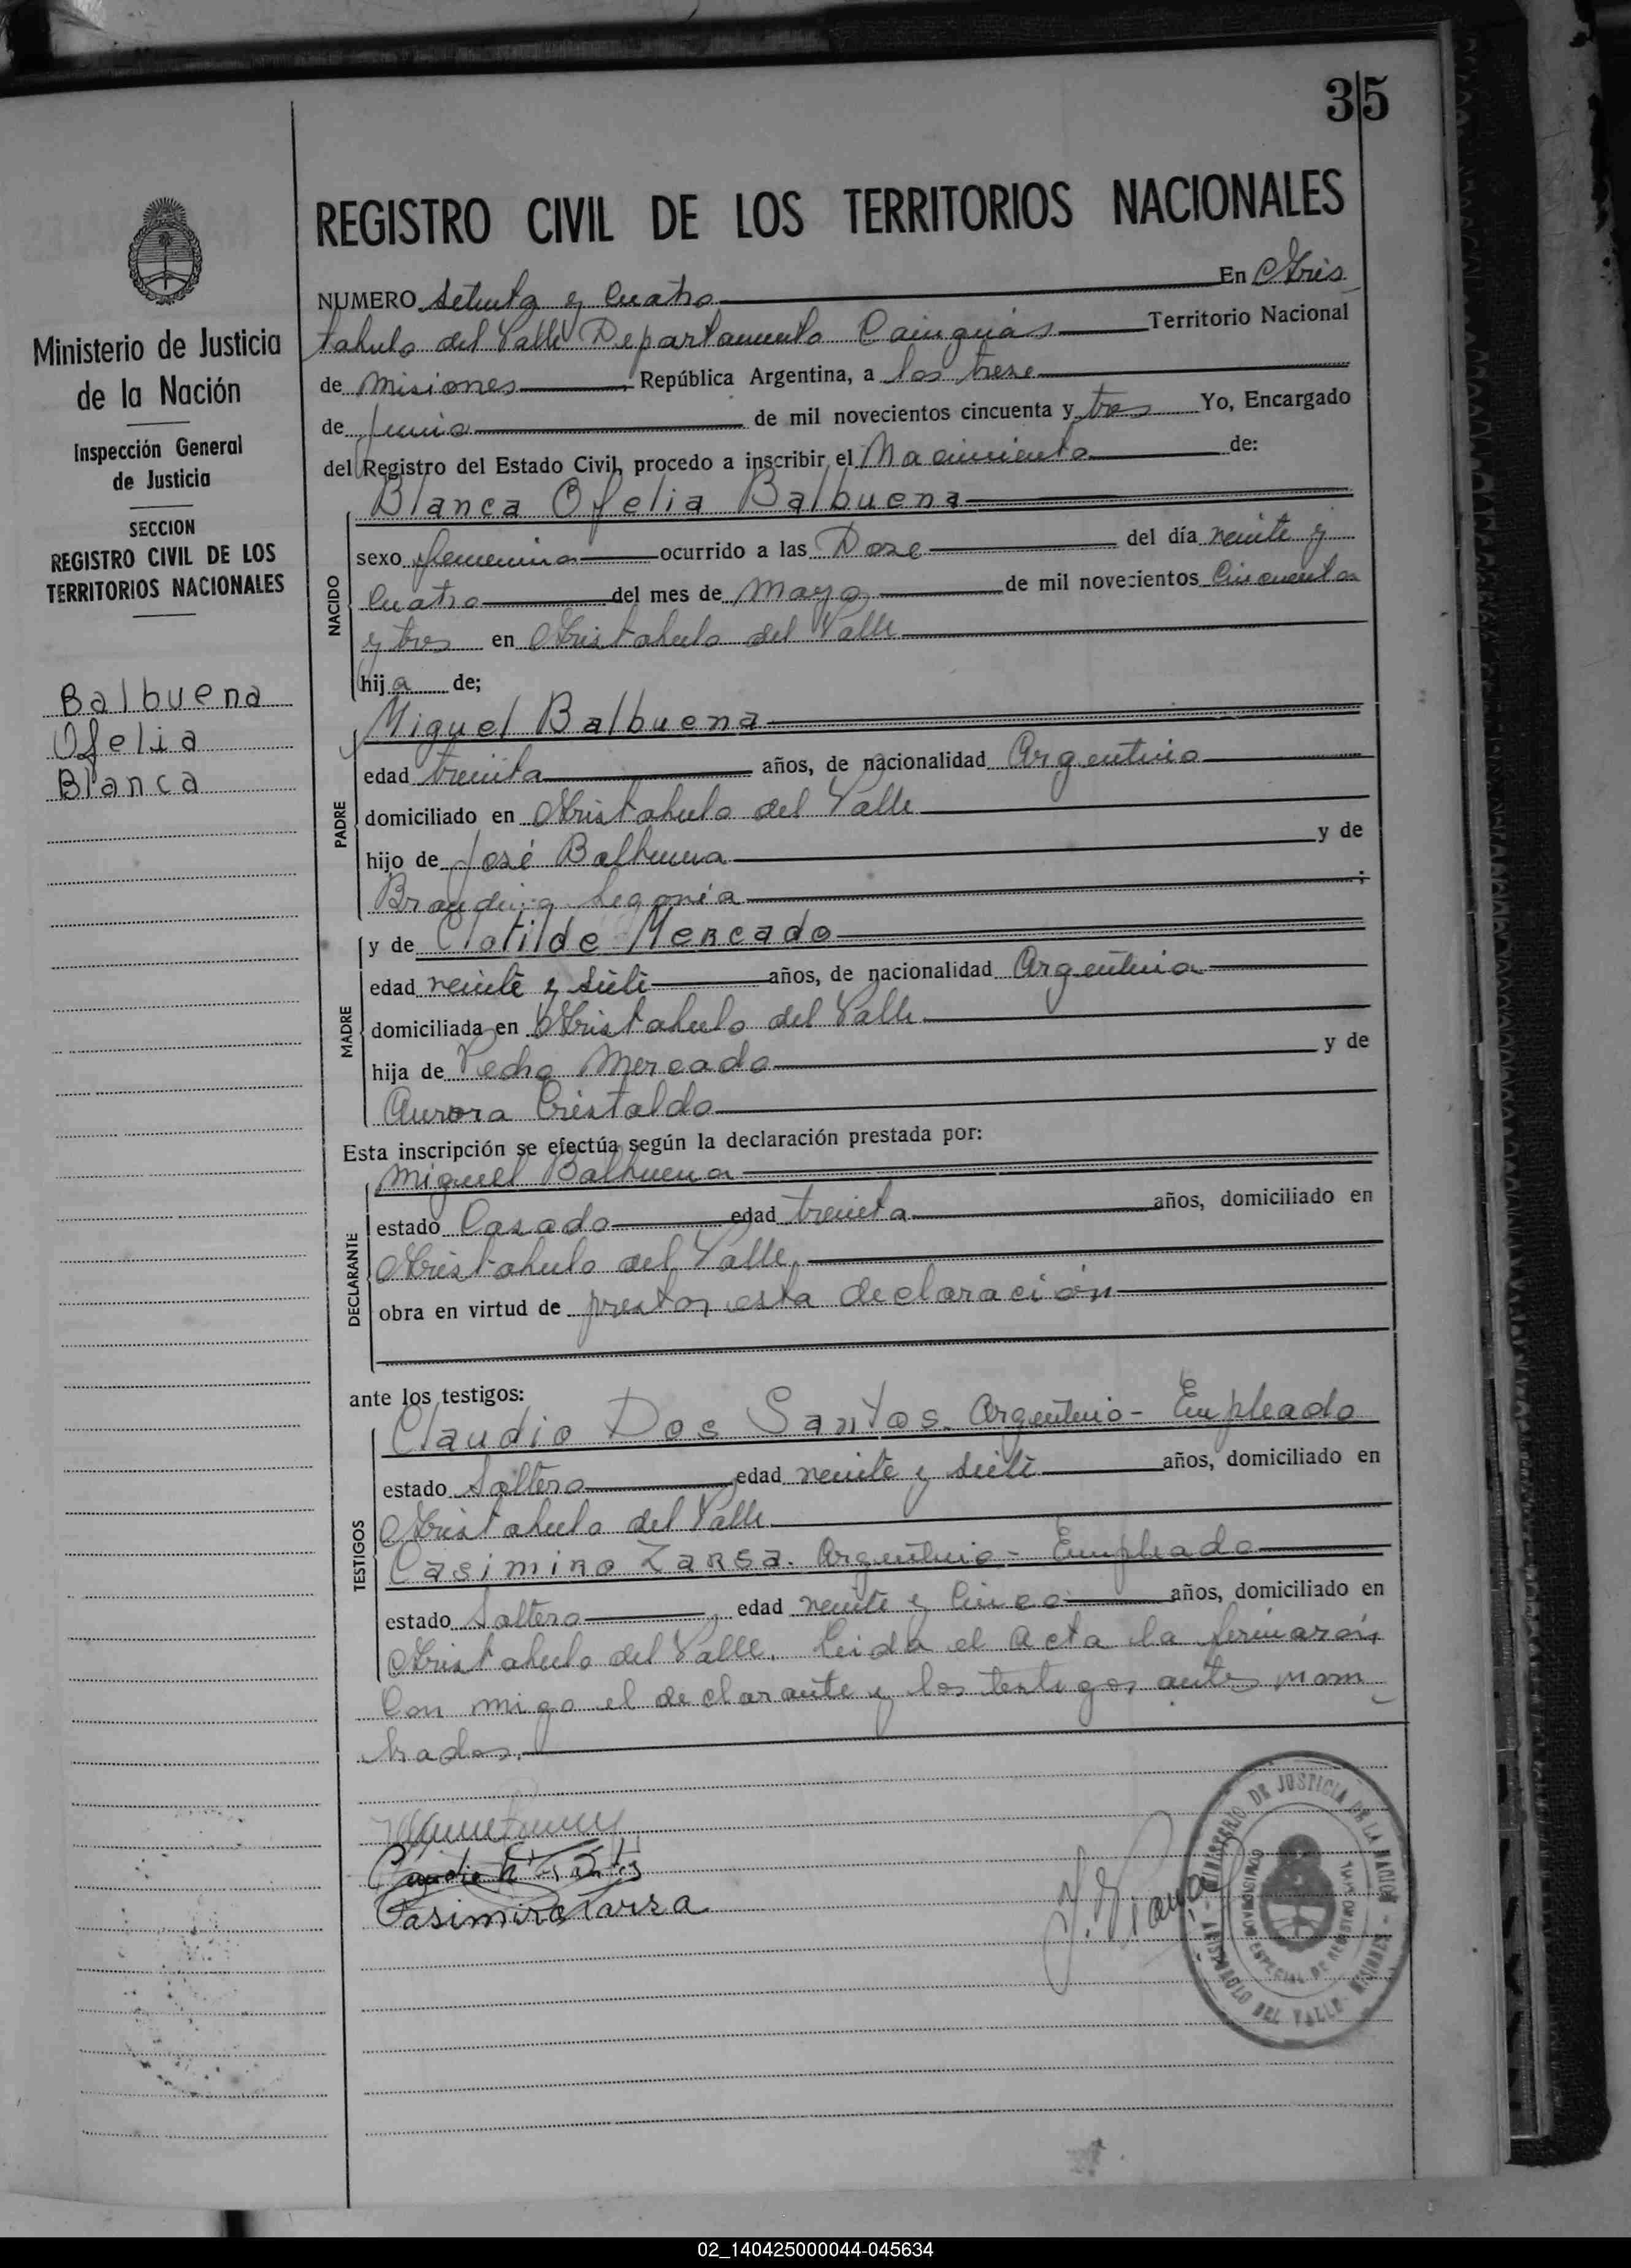 35
REGISTRO CIVIL DE LOS TERRITORIOS NACIONALES
Ministerio de Justicia
de la Nación
Inspección General
de Justicia
SECCION
REGISTRO CIVIL DE LOS
TERRITORIOS NACIONALES
Balbuena
Ofelia
Blanca
NUMERO Setenta y Cuatro En Aris
tobulo del Valle Departamento Cainguás Territorio Nacional
de Misiones República Argentina, a los trese
de junio de mil novecientos cincuenta y tres Yo, Encargado
del Registro del Estado Civil, procedo a inscribir el Nacimiento de:
NACIDO
Blanca Ofelia Balbuena
sexo femenino ocurrido a las Doze del día veinte y
Cuatro del mes de Mayo de mil novecientos Cincuenta
y tres en Aristobulo del Valle
hija de;
PADRE
Miguel Balbuena
edad treinta años, de nacionalidad Argentino
domiciliado en Aristobulo del Valle
hijo de José Balbuena y de
Segovia ;
MADRE
y de Clotilde Mercado
edad veinte y siete años, de nacionalidad Argentina
domiciliada en Aristobulo del Valle
hija de Pedro Mercado y de
Aurora Cristaldo
Esta inscripción se efectúa según la declaración prestada por:
DECLARANTE
Miguel Balbuena
estado Casado edad treinta años, domiciliado en
Aristobulo del Valle
obra en virtud de prestar esta declaración
ante los testigos:
TESTIGOS
Claudio Dos Santos. Argentino - Empleado
estado Soltero edad veinte y siete años, domiciliado en
Aristobulo del Valle
Casimiro Zarsa. Argentino - Empleado
estado Soltero, edad veinte y Cinco años, domiciliado en
Aristobulo del Valle. Leida el Acta la firmarón
Con migo el declarante y los testigos antes nom
brados.
Casimiro Zarza
MINISTERIO DE JUSTICIA DE LA NACION - ARISTOBULO DEL VALLE - MISIONES -
02_140425000044-045634